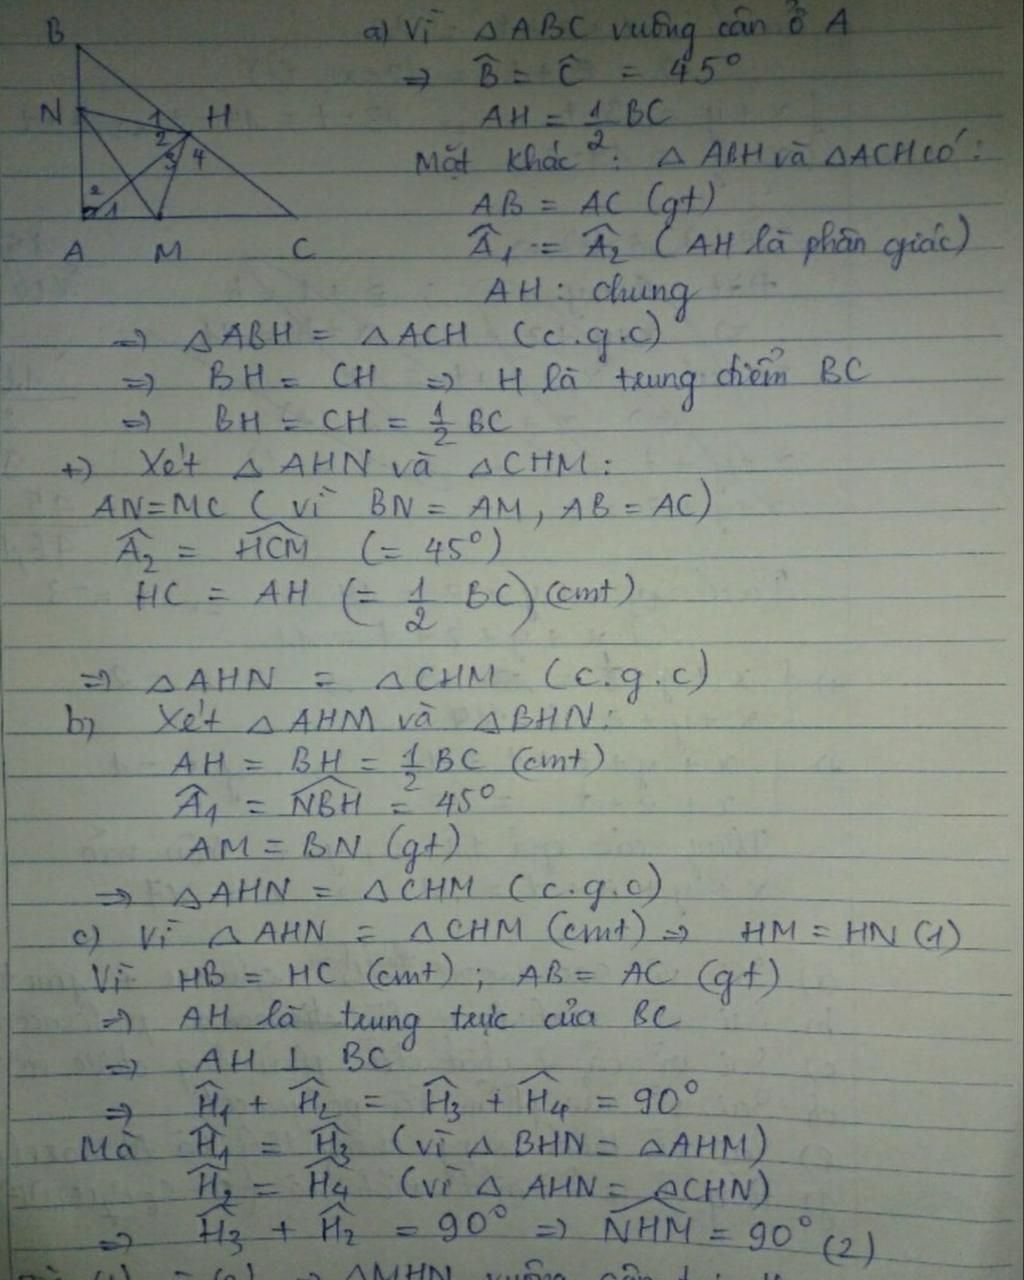 B
a) Vì △ABC vuông cân ở A
⇒ B̂ = Ĉ = 45°
N 1 H
2
3 4
AH = 1/2 BC
Mặt khác: △ABH và △ACH có:
2
1
AB = AC (gt)
A M C
Â1 = Â2 (AH là phân giác)
AH: chung
⇒ △ABH = △ACH (c.g.c)
⇒ BH = CH ⇒ H là trung điểm BC
⇒ BH = CH = 1/2 BC
+) Xét △AHN và △CHM:
AN=MC (vì BN = AM, AB = AC)
Â2 = HCM̂ (= 45°)
HC = AH (= 1/2 BC) (cmt)
⇒ △AHN = △CHM (c.g.c)
b) Xét △AHM và △BHN:
AH = BH = 1/2 BC (cmt)
Â1 = NBĤ = 45°
AM = BN (gt)
⇒ △AHN = △CHM (c.g.c)
c) Vì △AHN = △CHM (cmt) ⇒ HM = HN (1)
Vì HB = HC (cmt); AB = AC (gt)
⇒ AH là trung trực của BC
⇒ AH ⊥ BC
⇒ Ĥ1 + Ĥ2 = Ĥ3 + Ĥ4 = 90°
Mà Ĥ1 = Ĥ3 (vì △BHN = △AHM)
Ĥ2 = Ĥ4 (vì △AHN = △CHN)
⇒ Ĥ3 + Ĥ2 = 90° ⇒ NHM̂ = 90° (2)
⇒ △MHN vuông cân